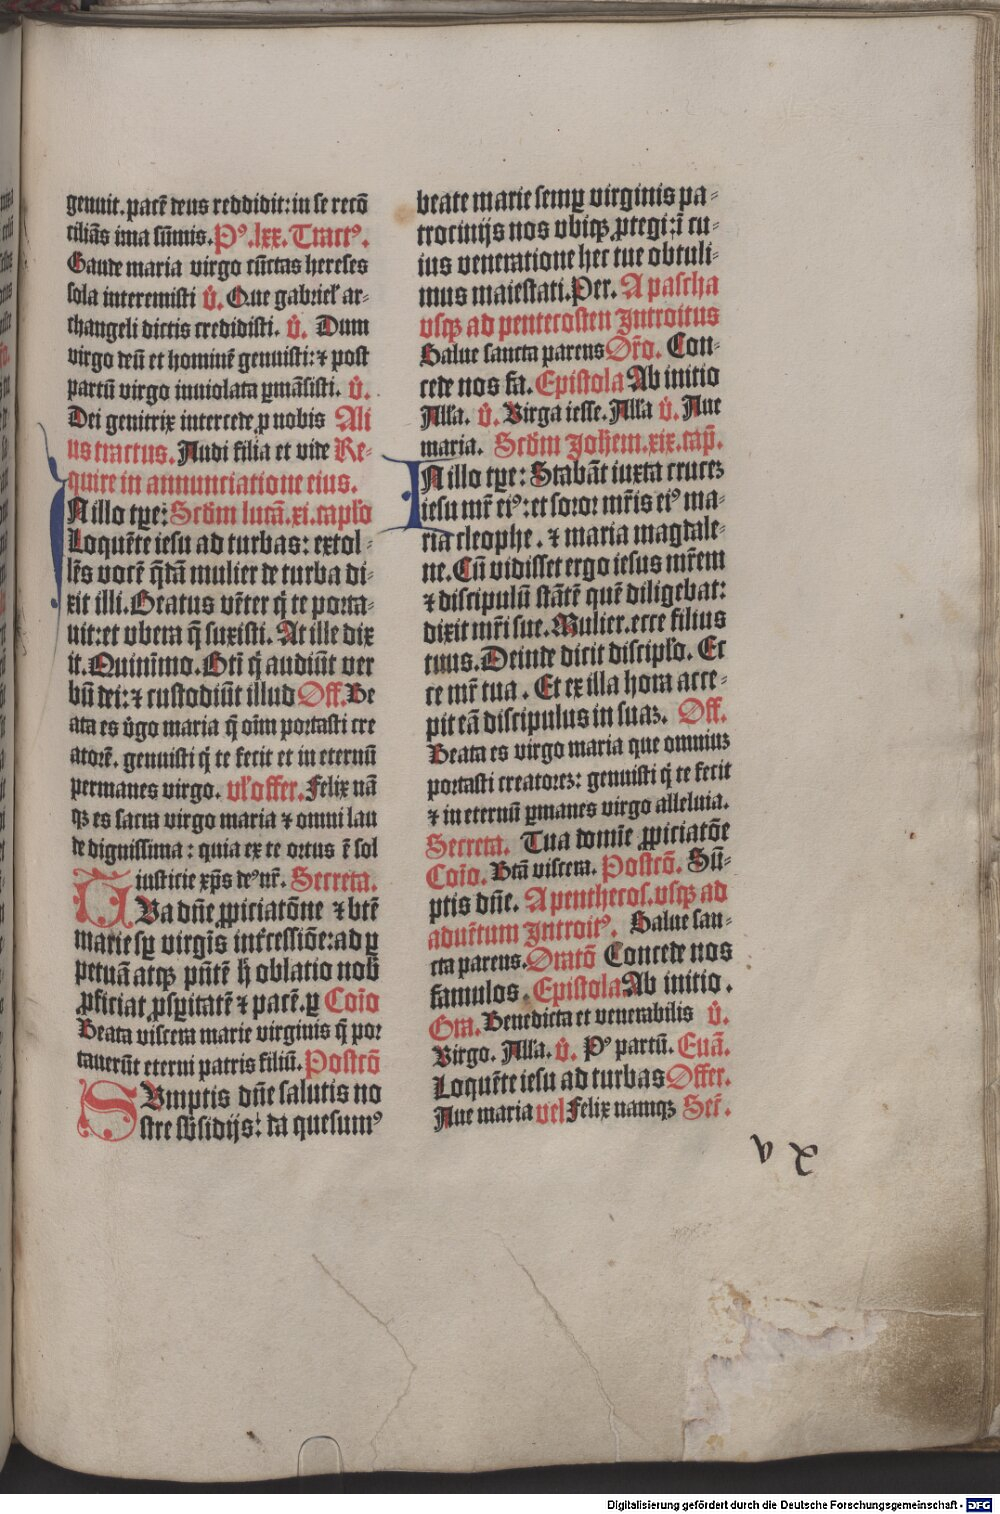 genuit. pacē deus reddidit: in se recō
ciliās ima sūmis. Pꝰ .lxx. Tractꝰ.
Gaude maria virgo cūctas hereses
sola interemisti v̄. Que gabriel' ar-
changeli dictis credidisti. v̄. Dum
virgo deū et hominē genuisti: ⁊ post
partū virgo inuiolata ꝑmāsisti. v̄.
Dei genitrix intercede ꝓ nobis Ali
us tractus. Audi filia et vide Re-
quire in annunciatione eius.
IN illo tꝑe: Scd̄m lucā. xi. capl'o
Loquēte iesu ad turbas: extol-
lēs vocē q̄dā mulier de turba di-
xit illi. Beatus vēter q̇ te porta-
uit: et vbera q̄ suxisti. At ille dix
it. Quinīmo. Bti̅ q̇ audiūt ver
bū dei: ⁊ custodiūt illud Off. Be
ata es v̇go maria q̄ oīm portasti cre
atorē. genuisti q̇ te fecit et in eternū
permanes virgo. vl' offer. Felix nā
qꝫ es sacra virgo maria ⁊ omni lau
de dignissima: quia ex te ortus ē sol
iusticie xp̄s deꝰ nr̄. Secreta.
TVa dn̄e ꝓpiciatōne ⁊ btē
marie sꝑ virgīs int̄cessiōe: ad ꝑ
petuā atqꝫ pn̄tē h̄ oblatio nob̄
ꝓficiat ꝓsꝑitatē ⁊ pacē. ꝑ Cōīo
Beata viscera marie virginis q̄ por
tauerūt eterni patris filiū. Postcō
SVmptis dn̄e salutis no
stre sb̄sidijs: da quesumꝰ
beate marie semꝑ virginis pa-
trocinijs nos vbiqꝫ ꝓtegi: ī cu-
ius veneratione hec tue obtuli-
mus maiestati. Per. A pascha
vsqꝫ ad pentecosten Introitus
Salue sancta parens Or̄o. Con-
cede nos fa. Epistola Ab initio
Alla. v̄. Virga iesse. Alla v̄. Aue
maria. Scd̄m Johem. xix. cap̄.
IN illo tꝑe: Stabāt iuxta cruceꝫ
iesu mr̄ eiꝰ: et soror mr̄is eiꝰ ma-
ria cleophe. ⁊ maria magdale-
ne. Cū vidisset ergo iesus mr̄em
⁊ discipulū stātē quē diligebat:
dixit mr̄i sue. Mulier. ecce filius
tuus. Deinde dicit discipl'o. Ec
ce mr̄ tua. Et ex illa hora acce-
pit eā discipulus in suaꝫ. Off.
Beata es virgo maria que omniuꝫ
portasti creatoreꝫ: genuisti q̇ te fecit
⁊ in eternū ꝑmanes virgo alleluia.
Secreta. Tua domīe ꝓpiciatōe
Cōīo. Btā viscera. Postcō. Sū-
ptis dn̄e. A penthecos. vsqꝫ ad
aduētum Introitꝰ. Salue san-
cta parens. Oratō Concede nos
famulos. Epistola Ab initio.
Gra. Benedicta et venerabilis v̄.
Virgo. Alla. v̄. Pꝰ partū. Euā.
Loquēte iesu ad turbas Offer.
Aue maria vel Felix namqꝫ Secr̄.
Digitalisierung gefördert durch die Deutsche Forschungsgemeinschaft - DFG